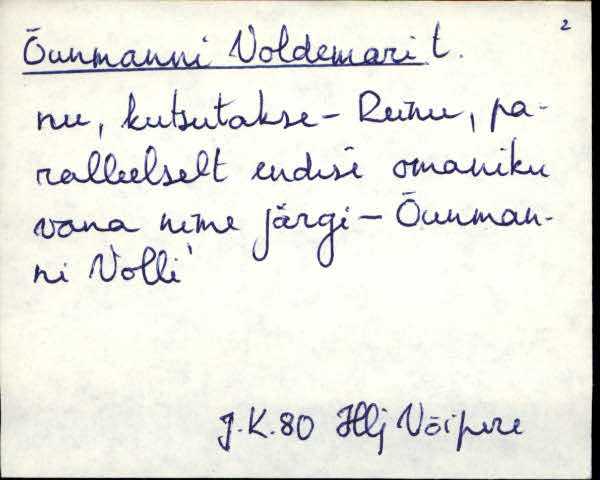 2
Õunmanni Voldemari t.
nu, kutsutakse – Reinu, pa-
ralleelselt endise omaniku
vana nime järgi – Õunman-
ni Volli'
J.K. 80 Hlj Võipere